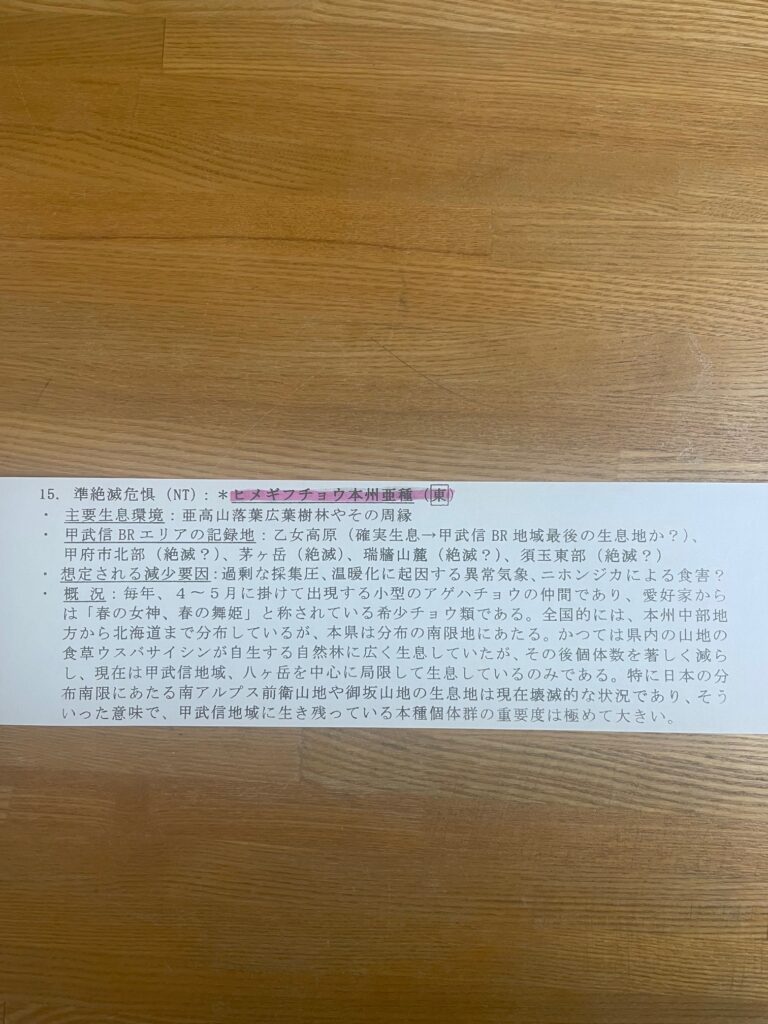 15. 準絶滅危惧 (NT) : *ヒメギフチョウ本州亜種 (東)
・ 主要生息環境 : 亜高山落葉広葉樹林やその周縁
・ 甲武信 BR エリアの記録地 : 乙女高原 (確実生息→甲武信 BR 地域最後の生息地か？)、
甲府市北部 (絶滅？)、茅ヶ岳 (絶滅)、瑞牆山麓 (絶滅？)、須玉東部 (絶滅？)
・ 想定される減少要因 : 過剰な採集圧、温暖化に起因する異常気象、ニホンジカによる食害？
・ 概 況 : 毎年、４～５月に掛けて出現する小型のアゲハチョウの仲間であり、愛好家から
は「春の女神、春の舞姫」と称されている希少チョウ類である。全国的には、本州中部地
方から北海道まで分布しているが、本県は分布の南限地にあたる。かつては県内の山地の
食草ウスバサイシンが自生する自然林に広く生息していたが、その後個体数を著しく減ら
し、現在は甲武信地域、八ヶ岳を中心に局限して生息しているのみである。特に日本の分
布南限にあたる南アルプス前衛山地や御坂山地の生息地は現在壊滅的な状況であり、そう
いった意味で、甲武信地域に生き残っている本種個体群の重要度は極めて大きい。